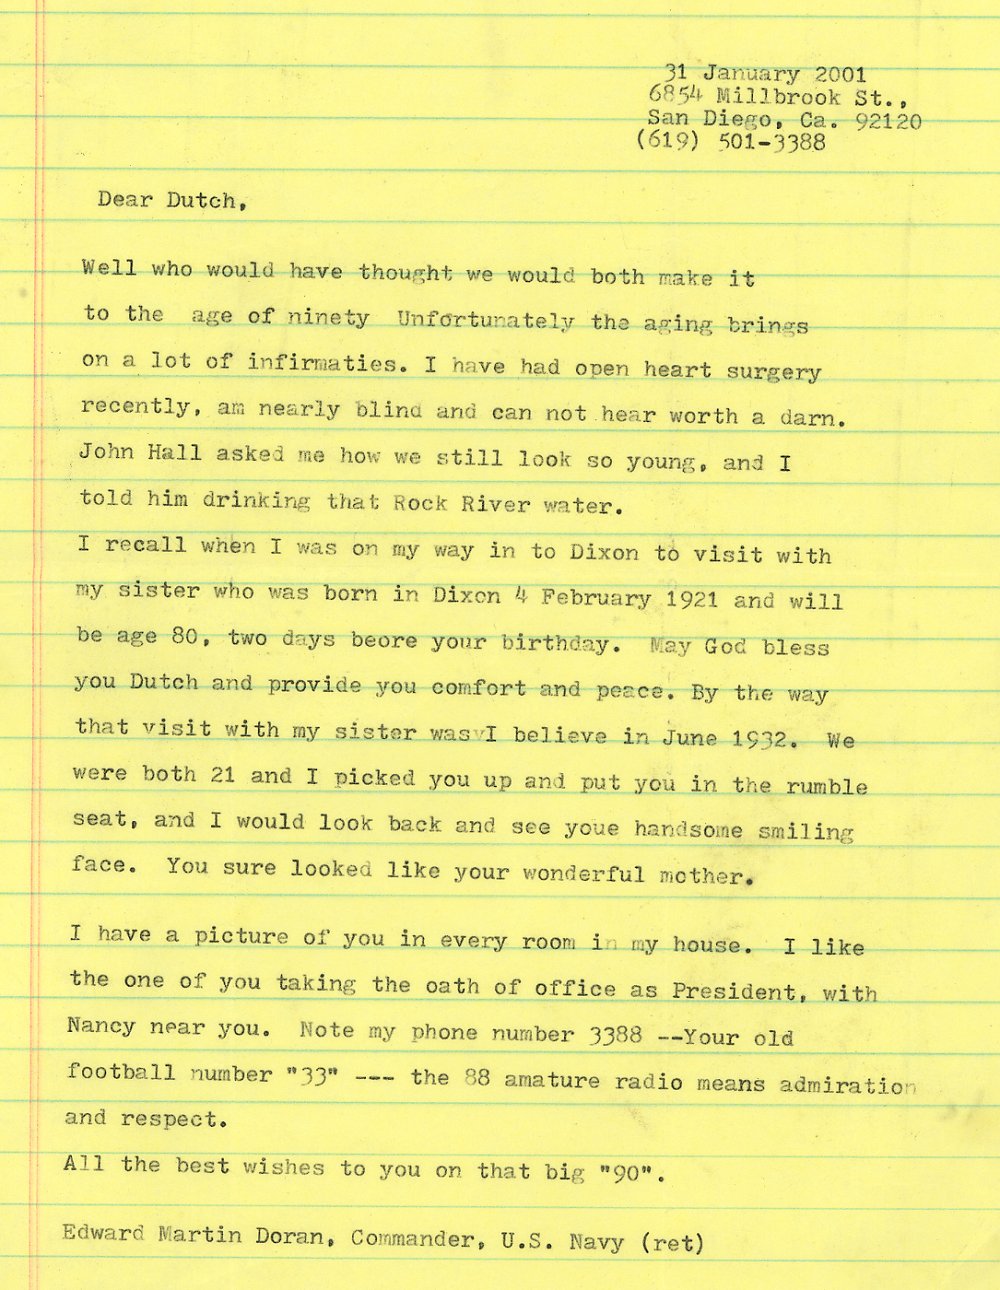 31 January 2001
6854 Millbrook St.,
San Diego, Ca. 92120
(619) 501-3388
Dear Dutch,
Well who would have thought we would both make it
to the age of ninety Unfortunately the aging brings
on a lot of infirmaties. I have had open heart surgery
recently, am nearly blind and can not hear worth a darn.
John Hall asked me how we still look so young, and I
told him drinking that Rock River water.
I recall when I was on my way in to Dixon to visit with
my sister who was born in Dixon 4 February 1921 and will
be age 80, two days beore your birthday. May God bless
you Dutch and provide you comfort and peace. By the way
that visit with my sister was I believe in June 1932. We
were both 21 and I picked you up and put you in the rumble
seat, and I would look back and see youe handsome smiling
face. You sure looked like your wonderful mother.
I have a picture of you in every room in my house. I like
the one of you taking the oath of office as President, with
Nancy near you. Note my phone number 3388 --Your old
football number "33" --- the 88 amature radio means admiration
and respect.
All the best wishes to you on that big "90".
Edward Martin Doran, Commander, U.S. Navy (ret)